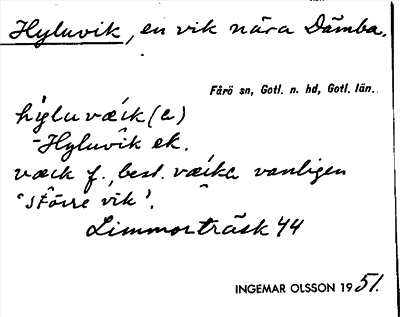 Hyluvik, en vik nära Dämba.
Fårö sn, Gotl. n. hd, Gotl. län.
hyluvæik (e)
-Hyluvik ek.
væik f., best. væika vanligen
'större vik'.
Limmorträsk 44
INGEMAR OLSSON 1951.